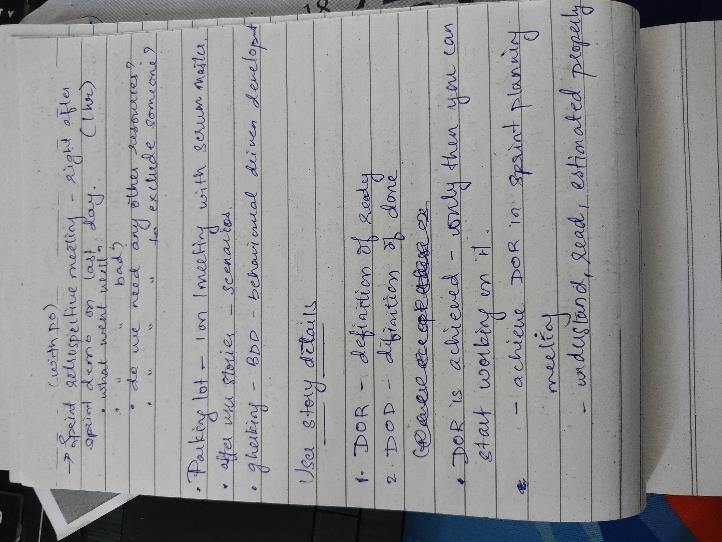 (with PO)
→ Sprint retrospective meeting - right after
sprint demo on last day. (1hr)
• what went well?
• " " bad?
• do we need any other resources?
• " " " to exclude someone?
• Parking lot - 1 on 1 meeting with scrum master
• after use stories - scenarios.
• gherking - BDD - behavioural driven developt
User story details
1. DOR - definition of ready
2. DOD - difinition of done
• DOR is achieved - only then you can
start working on it.
- achieve DOR in sprint planning
meeting
- understand, read, estimated properly